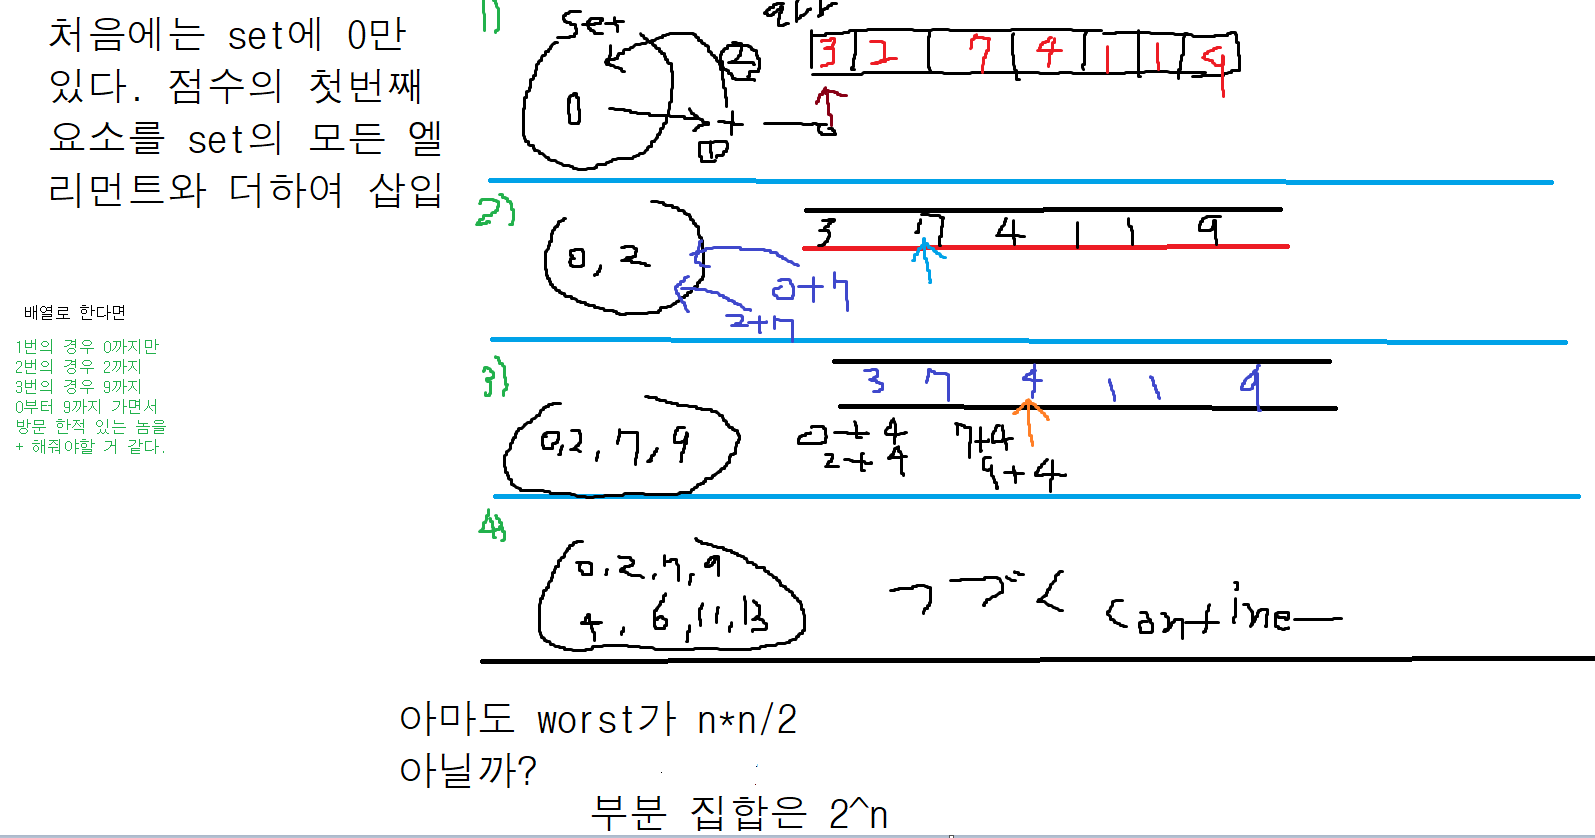 처음에는 set에 0만
있다. 점수의 첫번째
요소를 set의 모든 엘
리먼트와 더하여 삽입
배열로 한다면
1번의 경우 0까지만
2번의 경우 2까지
3번의 경우 9까지
0부터 9까지 가면서
방문 한적 있는 놈을
+ 해줘야할 거 같다.
1)
set
arr
3 2 7 4 1 1 9
0
②
+
①
2)
0, 2
3 7 4 1 1 9
0+7
2+7
3)
3 7 4 1 1 9
0,2, 7, 9
0+4 7+4
2+4 9+4
4)
0,2,7,9
4, 6,11,13
つづく continue
아마도 worst가 n*n/2
아닐까?
부분 집합은 2^n